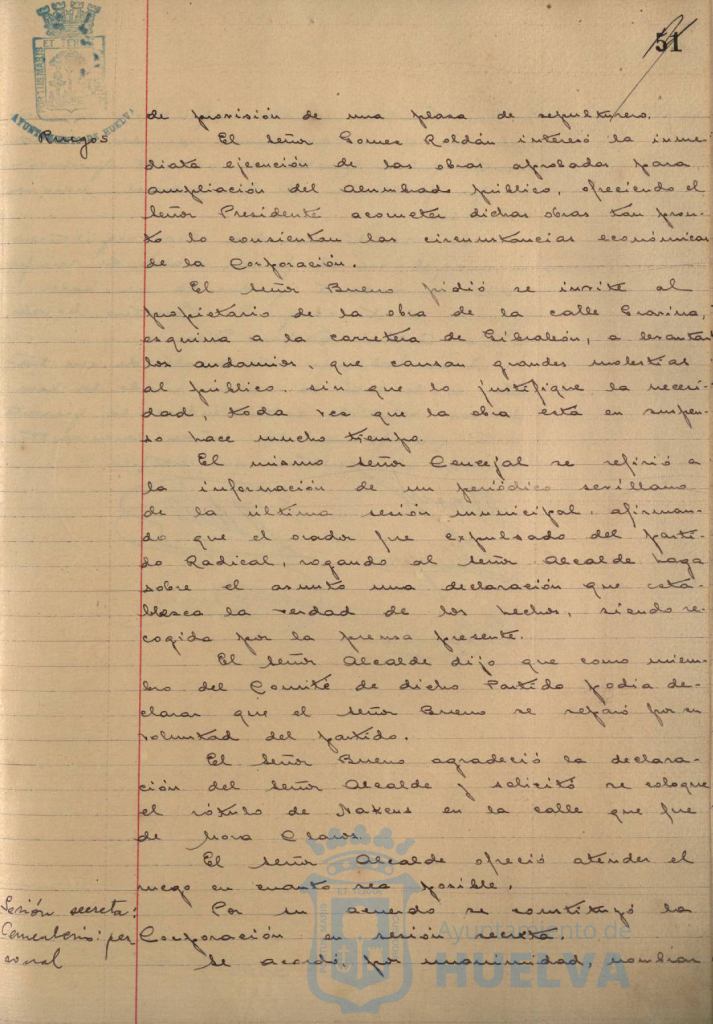 51
de provisión de una plaza de sepulturero.
Ruegos
El señor Gomez Roldán interesó la inme-
diata ejecución de las obras aprobadas para
ampliación del alumbrado público, ofreciendo el
señor Presidente acometer dichas obras tan pron-
to lo consientan las circunstancias económicas
de la Corporación.
El señor Bueno pidió se invite al
propietario de la obra de la calle Gravina,
esquina a la carretera de Gibraleón, a levantar
los andamios, que causan grandes molestias
al público, sin que lo justifique la necesi-
dad, toda vez que la obra está en suspen-
so hace mucho tiempo.
El mismo señor Concejal se refirió a
la información de un periódico sevillano
de la última sesión municipal, afirman-
do que el orador fue expulsado del parti-
do Radical, rogando al señor Alcalde haga
sobre el asunto una declaración que esta-
blezca la verdad de los hechos, siendo re-
cogida por la prensa presente.
El señor Alcalde dijo que como miem-
bro del Comité de dicho Partido podia de-
clarar que el señor Bueno se separó por su
voluntad del partido.
El señor Bueno agradeció la declara-
ción del señor Alcalde y solicitó se coloque
el rótulo de Nakens en la calle que fue
de Mora Claros.
El señor Alcalde ofreció atender el
ruego en cuanto sea posible.
Sesión secreta:
Cementerio: per
sonal
Por un acuerdo se constituyó la
Corporación en sesión secreta.
Se acordó, por unanimidad, nombrar
AYUNTAMIENTO DE HUELVA
Ayuntamiento de
HUELVA